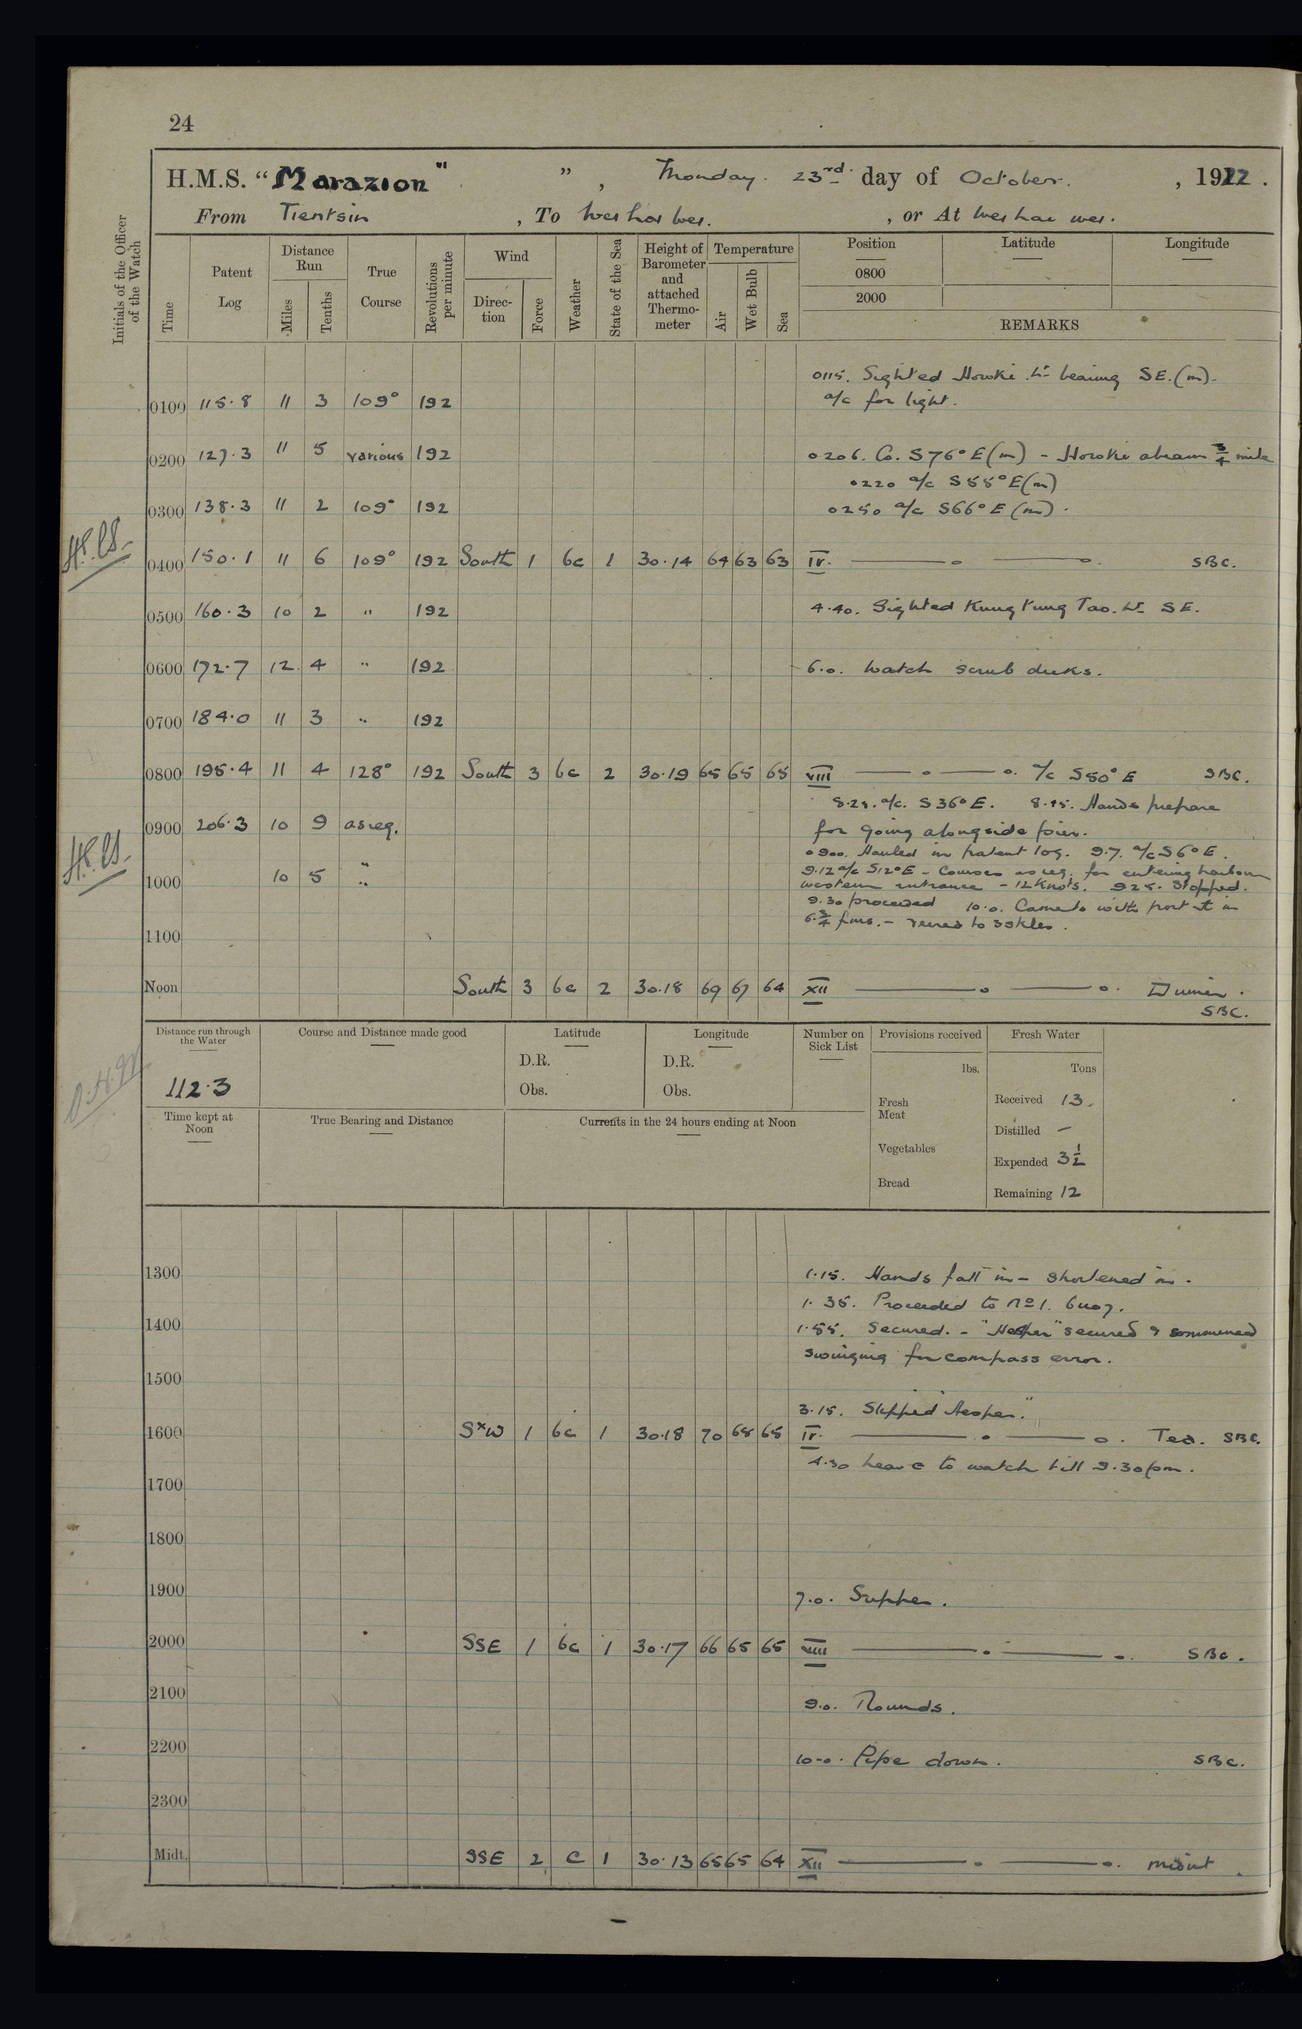 24
H.M.S. “Marazion” ” , Monday. 23rd. day of October. , 1922 .
From Tientsin , To Wei hai Wei. , or At Wei hai wei.
Initials of the Officer of the Watch
Time
Patent Log
Distance Run
Miles
Tenths
True Course
Revolutions per minute
Wind
Direc-tion
Force
Weather
State of the Sea
Height of Barometer and attached Thermo-meter
Temperature
Air
Wet Bulb
Sea
Position Latitude Longitude
0800
2000
REMARKS
0115. Sighted Howki Lt bearing SE.(m).
0100 115.8 11 3 109° 192 a/c for light.
0200 127.3 11 5 various 192 0206. Co. S76°E(m) - Howki abeam 3/4 mile
0220 a/c S55°E(m)
0300 138.3 11 2 109° 192 0250 a/c S66°E (m).
0400 150.1 11 6 109° 192 South 1 bc 1 30.14 64 63 63 IV. SBC.
0500 160.3 10 2 " 192 4.40. Sighted Kung Kung Tao. Lt SE.
0600 172.7 12 4 " 192 6.0. Watch scrub decks.
0700 184.0 11 3 " 192
0800 195.4 11 4 128° 192 South 3 bc 2 30.19 65 65 65 VIII a/c S50°E SBC.
8.25. a/c. S36°E. 8.45. Hands prepare
0900 206.3 10 9 as req. for going alongside
0900. Hauled in patent log. 9.7. a/c S6°E.
1000 10 5 " 9.12 a/c S12°E - Courses as req. for entering harbour
western entrance - 12 knots. 925. Stopped.
9.30 proceeded 10.0. Came to with port in
6 3/4 fms. - veered to 3 skles.
1100
Noon South 3 bc 2 30.18 69 67 64 XII Dinner.
SBC.
Distance run through the Water
112.3
Course and Distance made good
Latitude
D.R.
Obs.
Longitude
D.R.
Obs.
Number on Sick List
Provisions received
lbs.
Fresh Meat
Vegetables
Bread
Fresh Water
Tons
Received 13.
Distilled –
Expended 3 1/2
Remaining 12
Time kept at Noon
True Bearing and Distance
Currents in the 24 hours ending at Noon
1300 1.15. Hands fall in - shortened in.
1.35. Proceeded to No 1. buoy.
1400 1.55. Secured. - "Hesper" secured & commenced
swinging for compass error.
1500
3.15. Slipped "Hesper."
1600 SxW 1 bc 1 30.18 70 68 65 IV. Tea. SBC.
4.30 leave to watch till 9.30pm.
1700
1800
1900 7.0. Supper.
2000 SSE 1 bc 1 30.17 66 65 65 VIII SBC.
2100 9.0. Rounds.
2200 10.0. Pipe down. SBC.
2300
Midt. SSE 2 c 1 30.13 65 65 64 XII